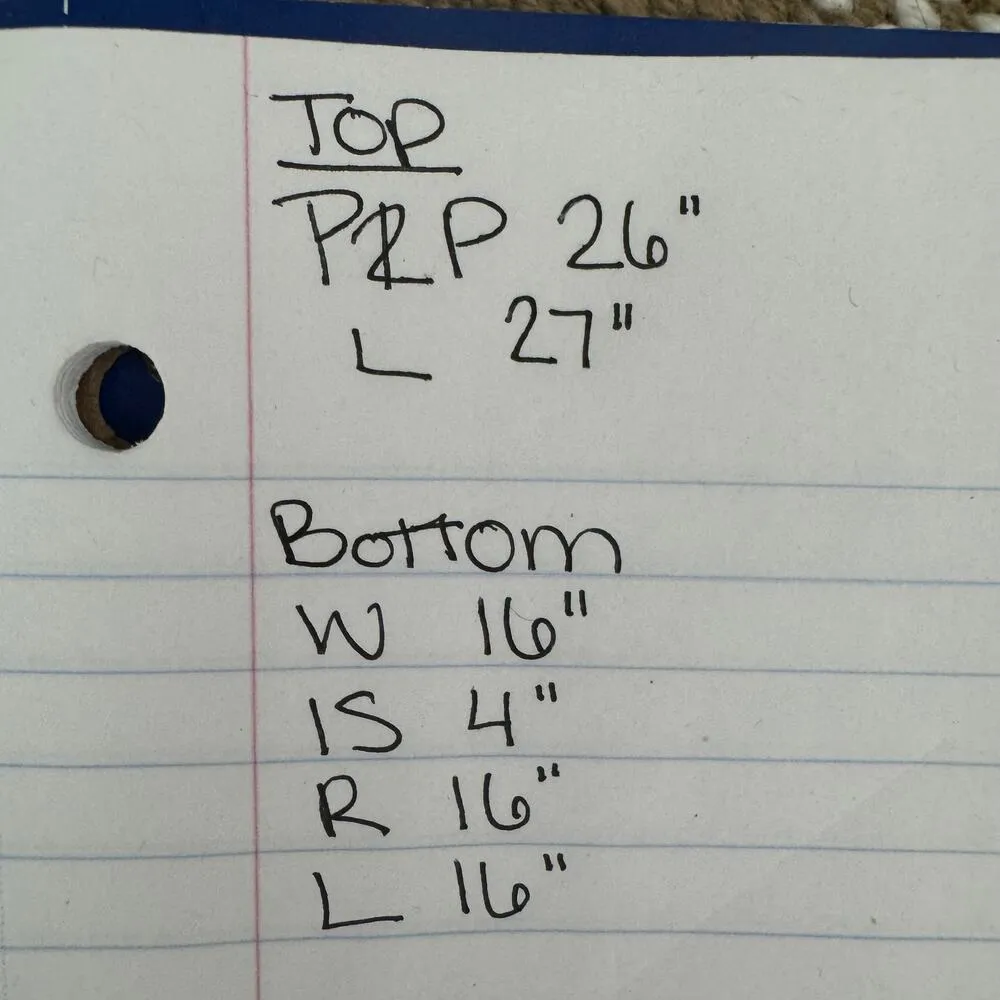 Top
P2P 26"
L 27"
Bottom
W 16"
IS 4"
R 16"
L 16"